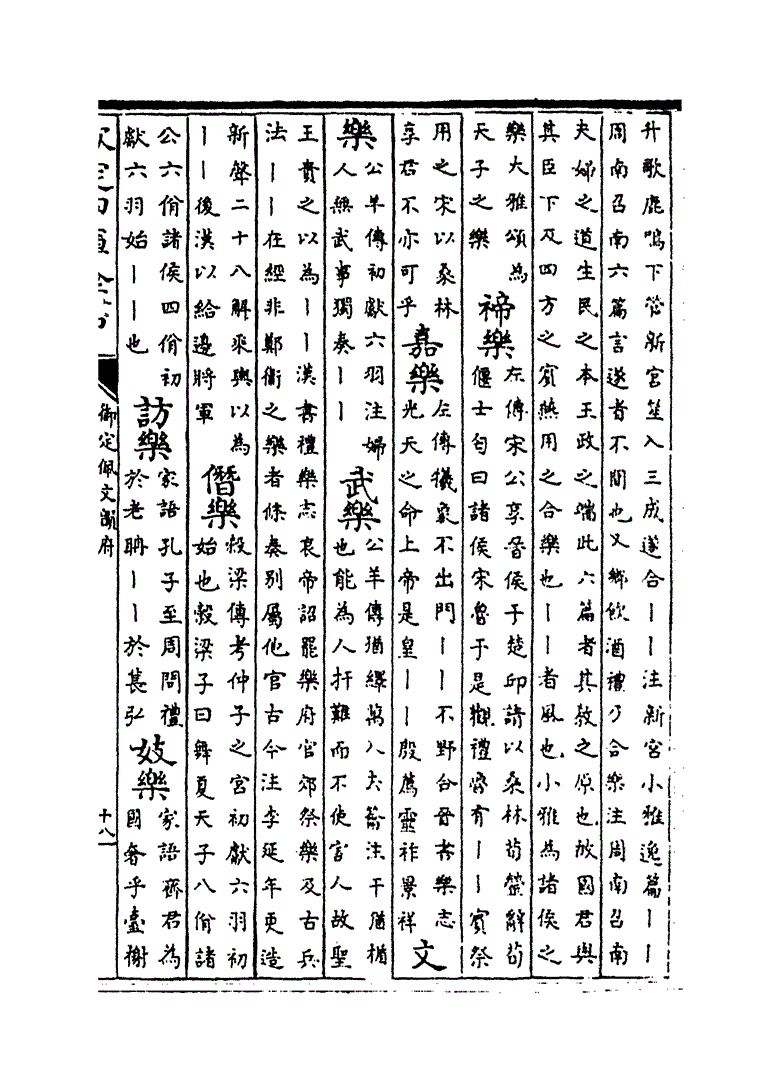 升歌鹿鳴下管新宮笙入三成遂合丨丨注新宮小雅逸篇丨丨
周南召南六篇言遂者不間也又鄉飲酒禮乃合樂注周南召南
夫婦之道生民之本王政之端此六篇者其教之原也故國君與
其臣下及四方之賓燕用之合樂也丨丨者風也小雅為諸侯之
樂大雅頌為
天子之樂
禘樂
左傳宋公享晉侯于楚邱請以桑林荀罃辭荀
偃士匄曰諸侯宋魯于是觀禮魯有丨丨賓祭
用之宋以桑林
享君不亦可乎
嘉樂
左傳犧象不出門丨丨不野合晉書樂志
光天之命上帝是皇丨丨殷薦靈祚景祥
文
樂
公羊傳初獻六羽注婦
人無武事獨奏丨丨
武樂
公羊傳猶繹萬入去籥注干猶楯
也能為人扞難而不使害人故聖
王貴之以為丨丨漢書禮樂志哀帝詔罷樂府官郊祭樂及古兵
法丨丨在經非鄭衛之樂者條奏別屬他官古今注李延年更造
新聲二十八解乘輿以為
丨丨後漢以給邊將軍
僭樂
穀梁傳考仲子之宮初獻六羽初
始也穀梁子曰舞夏天子八佾諸
公六佾諸侯四佾初
獻六羽始丨丨也
訪樂
家語孔子至周問禮
於老聃丨丨於萇弘
妓樂
家語齊君為
國奢乎臺榭
欽定四庫全書
御定佩文韻府
十八